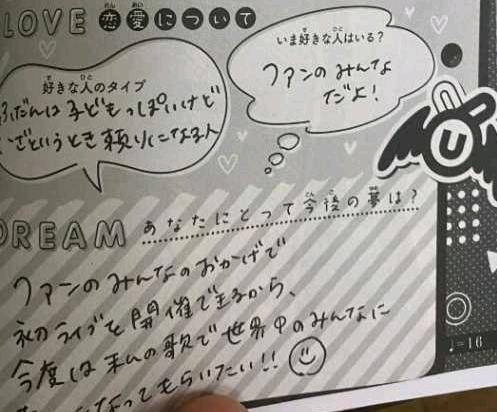 LOVE 恋愛について
いま好きな人はいる?
ファンのみんな
だよ!
好きな人のタイプ
ふだんは子どもっぽいけど
いざというとき頼りになる人
DREAM あなたにとって今後の夢は?
ファンのみんなのおかげで
初ライブを開催できるから、
今度は私の歌で世界中のみんなに
なってもらいたい!!
U
♩=16